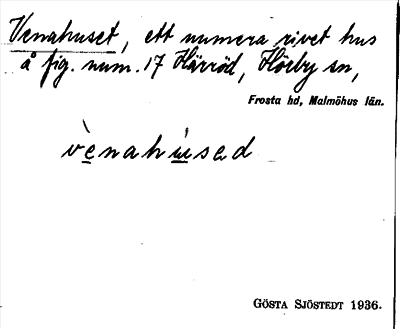 Venahuset, ett numera rivet hus
å fig. num. 17 Härröd, Hörby sn,
Frosta hd, Malmöhus län.
vènahúsed
GÖSTA SJÖSTEDT 1936.